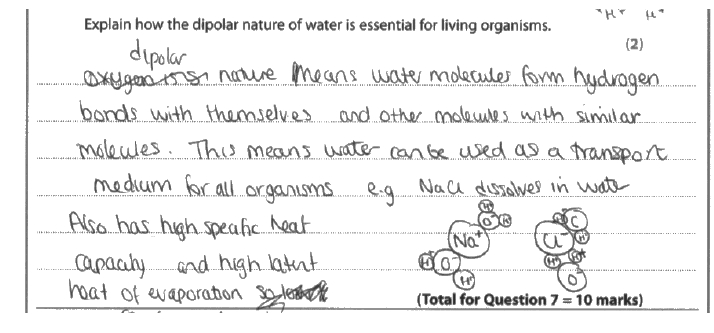 Explain how the dipolar nature of water is essential for living organisms.
(2)
dipolar
nature means water molecules form hydrogen
bonds with themselves and other molecules with similar
molecules. This means water can be used as a transport
medium for all organisms e.g NaCl dissolves in wate
Also has high specific heat
capacity and high latent
heat of evaporation
H O⁻ H
Na⁺ Cl⁻
H⁺ O⁻ H⁺
(Total for Question 7 = 10 marks)